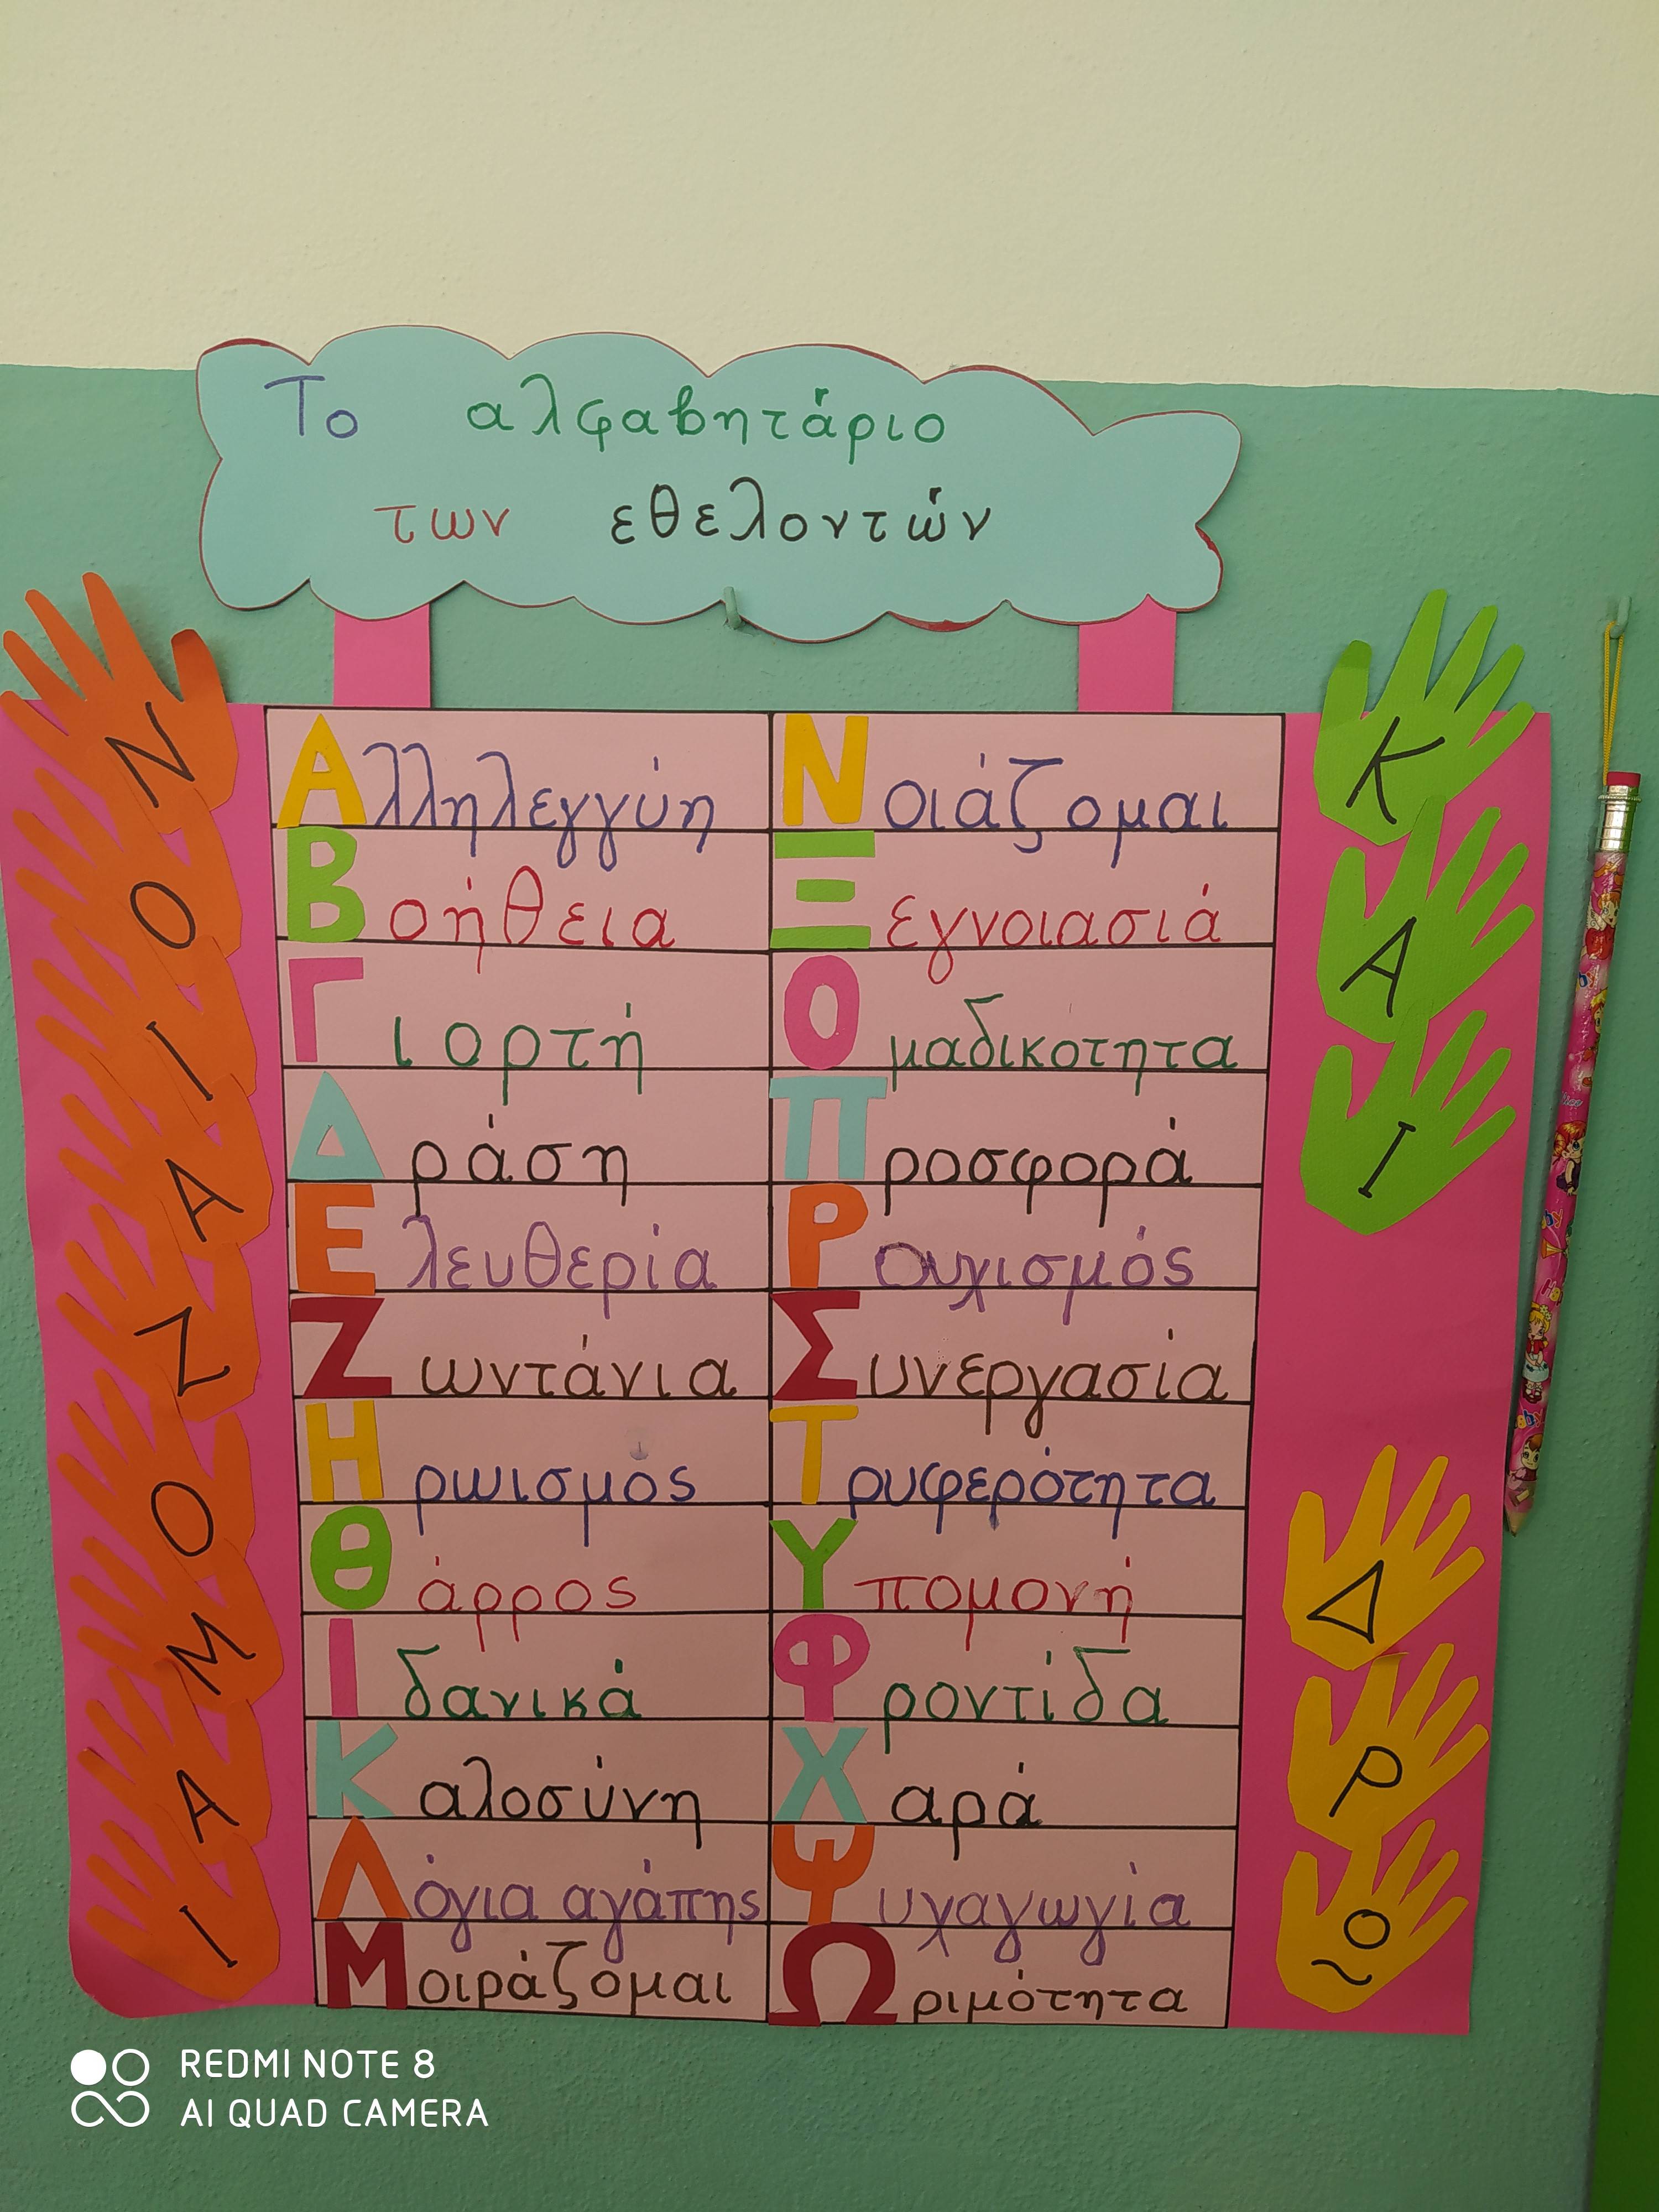 Το αλφαβητάριο
των εθελοντών
ΝΟΙΑΖΟΜΑΙ
Αλληλεγγύη
Βοήθεια
Γιορτή
Δράση
Ελευθερία
Ζωντάνια
Ηρωισμός
Θάρρος
Ιδανικά
Καλοσύνη
Λόγια αγάπης
Μοιράζομαι
Νοιάζομαι
Ξεγνοιασιά
Ομαδικοτητα
Προσφορά
Ρουχισμός
Συνεργασία
Τρυφερότητα
Υπομονή
Φροντίδα
Χαρά
Ψυχαγωγία
Ωριμότητα
ΚΑΙ
ΔΡΩ
REDMI NOTE 8
AI QUAD CAMERA